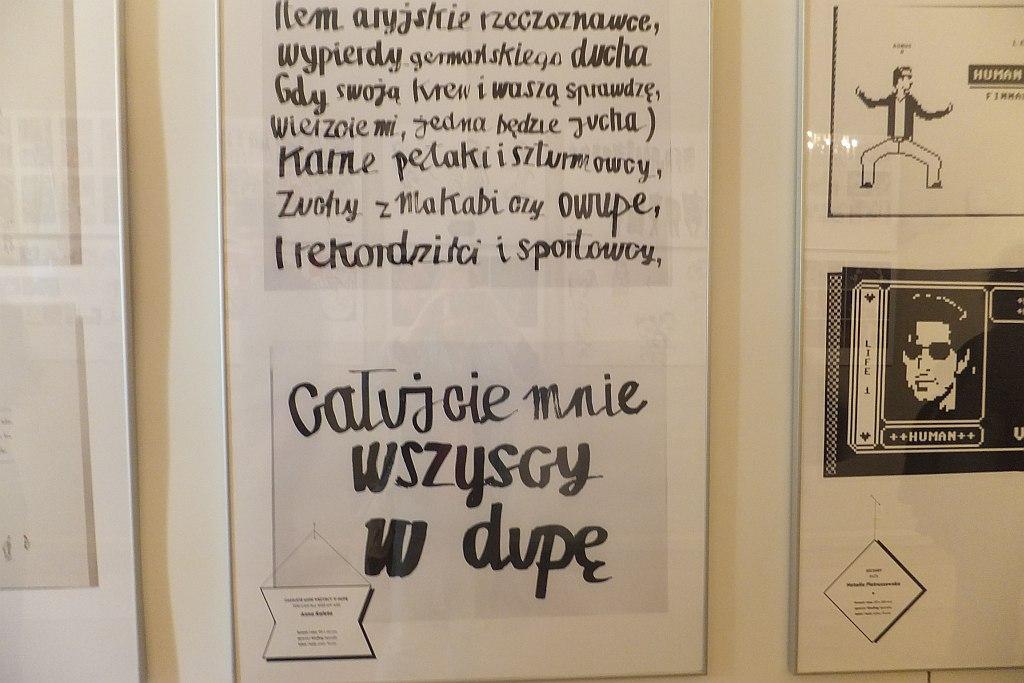 Item aryjskie rzeczoznawce,
wypierdy germańskiego ducha
Gdy swoją krew i waszą sprawdzę,
wierzcie mi, jedna będzie jucha)
Karne pętaki i szturmowcy,
Zuchy z Makabi czy owupe,
I rekordziści i sportowcy,
Całujcie mnie
wszyscy
w dupę
HUMAN
LIFE 1
++HUMAN++